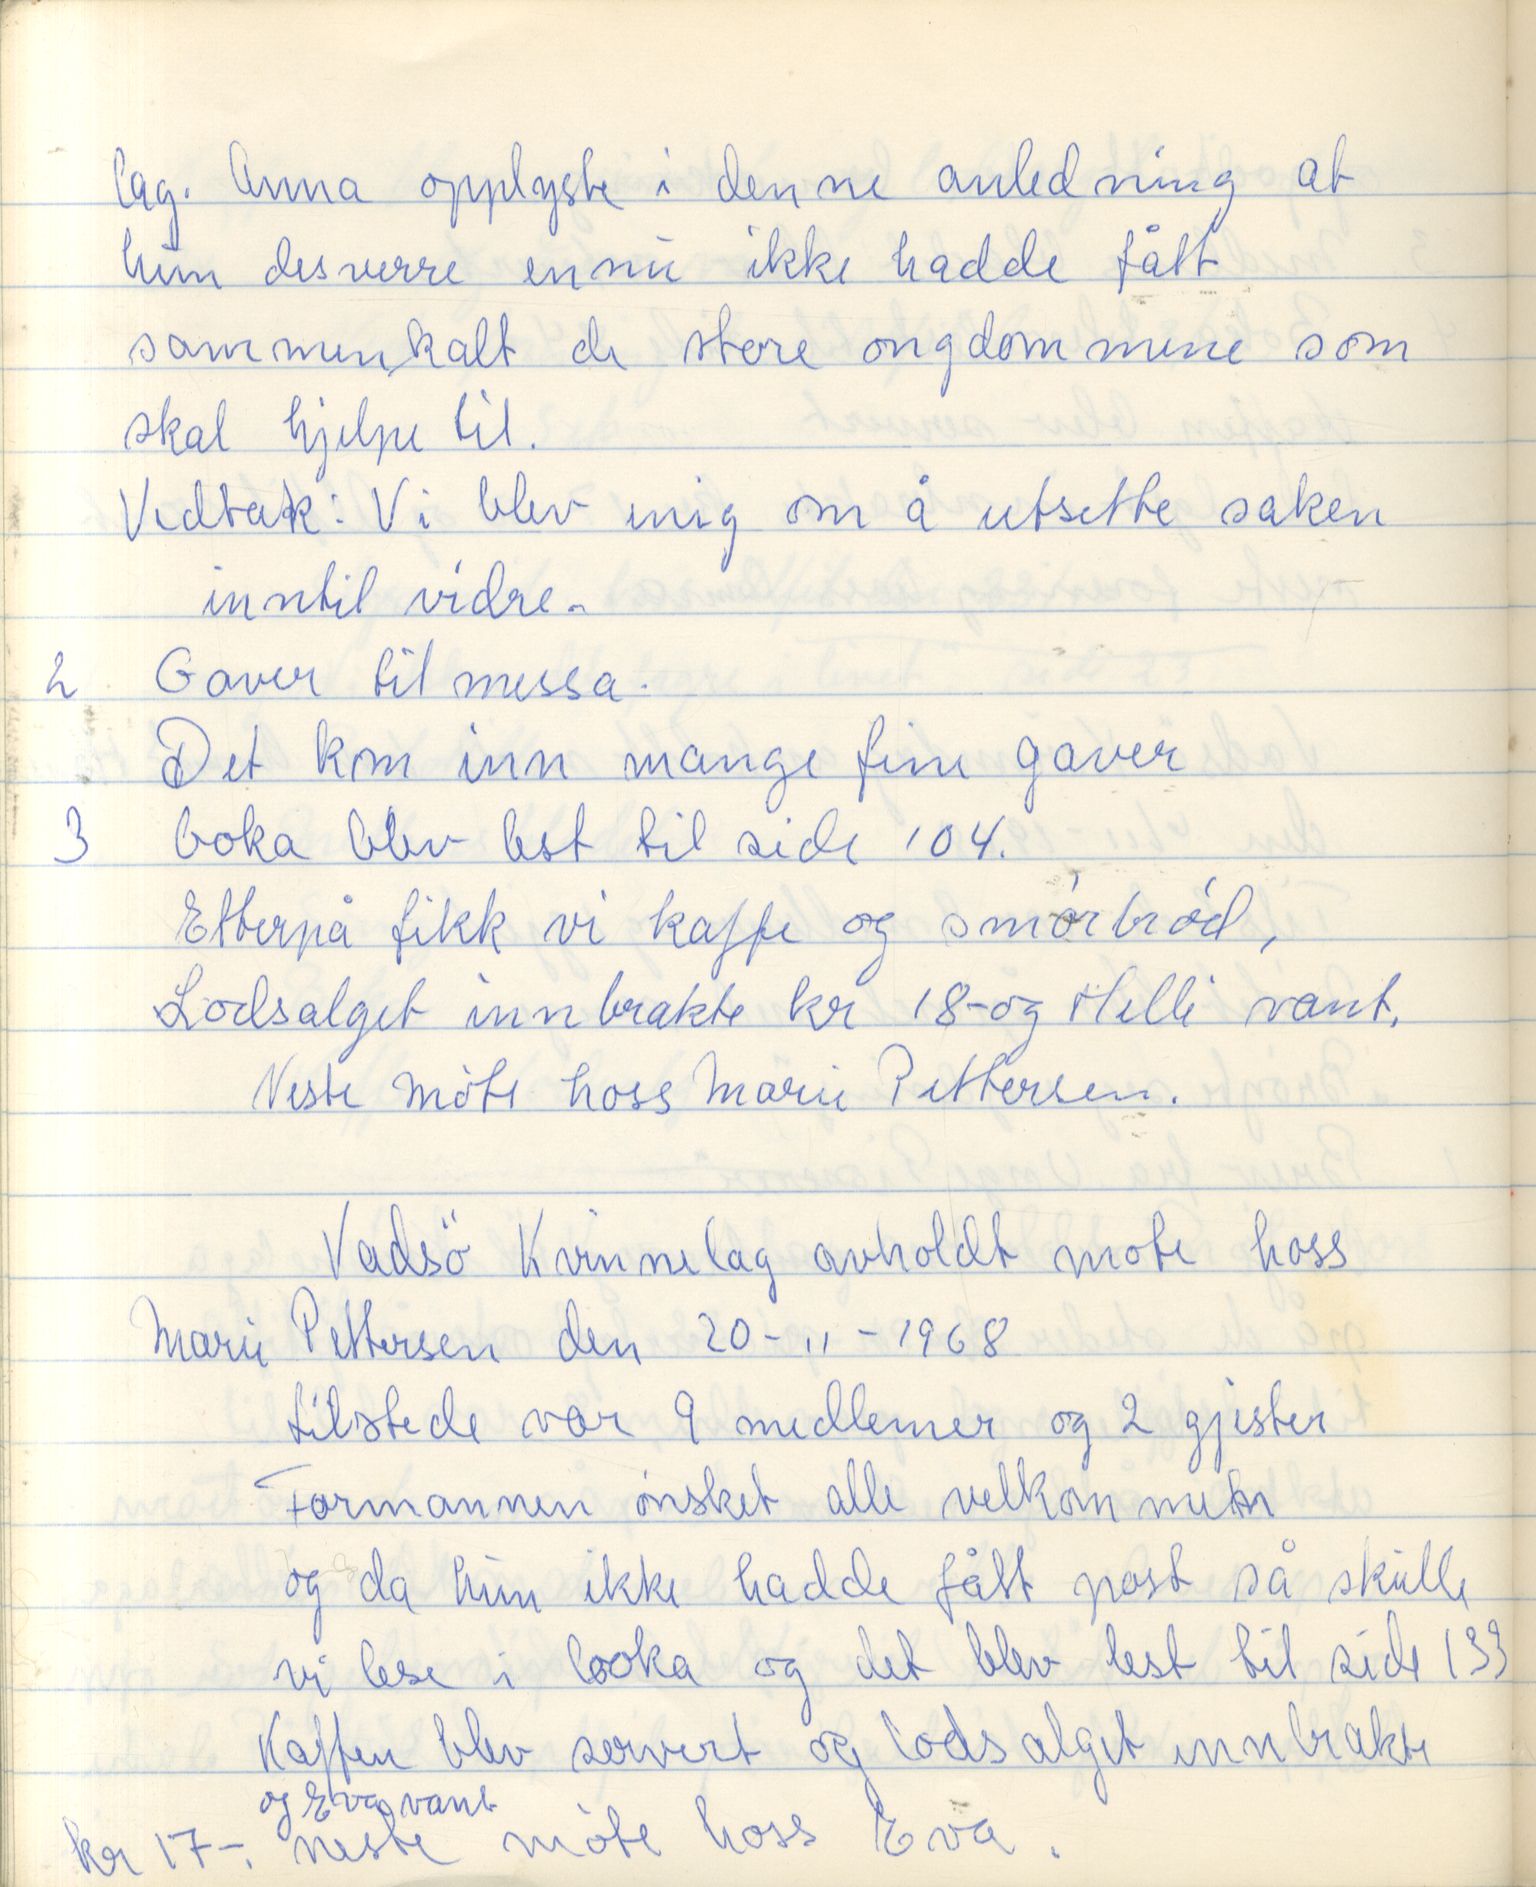 lag. Anna opplyste i denne anledning at
hun desverre ennu ikke hadde fått
sammenkalt de støre ongdommene som
skal hjelpe til.
Vedtak: Vi blev enig om å utsette saken
inntil vidre.
2 Gaver til messa.
Det kom inn mange fine gaver
3 boka blev lest til side 104.
Etterpå fikk vi kaffe og smörbröd,
Lodsalget innbrakte kr 18- og Helli vant.
Neste möte hoss Marie Pettersen.
Vadsö Kvinnelag avholdt mote hoss
Marie Pettersen den 20-11-1968
tilstede var 9 medlemer og 2 gjester
Formannen önsket alle velkommen
og da hun ikke hadde fått post så skulle
vi lese i boka og det blev lest til side 133
Kaffen blev servert og lodsalget innbrakte
og Eva vant
kr 17-. neste möte hoss Eva.